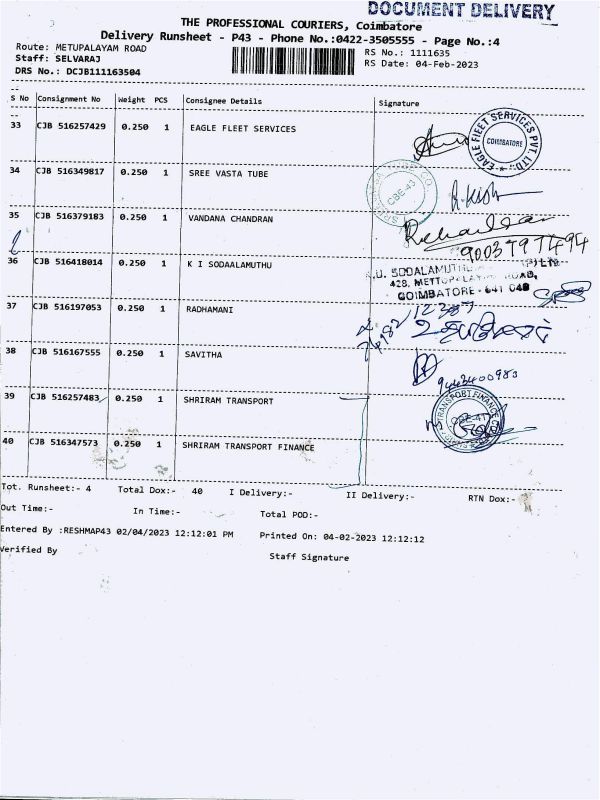 DOCUMENT DELIVERY
THE PROFESSIONAL COURIERS, Coimbatore
Delivery Runsheet - P43 - Phone No.:0422-3505555 - Page No.:4
Route: METUPALAYAM ROAD
RS No.: 1111635
Staff: SELVARAJ
RS Date: 04-Feb-2023
DRS No.: DCJB111163504
S No Consignment No Weight PCS Consignee Details Signature
33 CJB 516257429 0.250 1 EAGLE FLEET SERVICES
EAGLE FLEET SERVICES PVT. LTD.
COIMBATORE
34 CJB 516349817 0.250 1 SREE VASTA TUBE
CBE-43
35 CJB 516379183 0.250 1 VANDANA CHANDRAN
9003797494
36 CJB 516418014 0.250 1 K I SODAALAMUTHU
428, METTUPALAYAM ROAD,
COIMBATORE - 641 043
37 CJB 516197053 0.250 1 RADHAMANI
38 CJB 516167555 0.250 1 SAVITHA
9443400983
39 CJB 516257483 0.250 1 SHRIRAM TRANSPORT
TRANSPORT FINANCE
40 CJB 516347573 0.250 1 SHRIRAM TRANSPORT FINANCE
Tot. Runsheet:- 4 Total Dox:- 40 I Delivery:- II Delivery:- RTN Dox:-
Out Time:- In Time:- Total POD:-
Entered By :RESHMAP43 02/04/2023 12:12:01 PM Printed On: 04-02-2023 12:12:12
Verified By Staff Signature